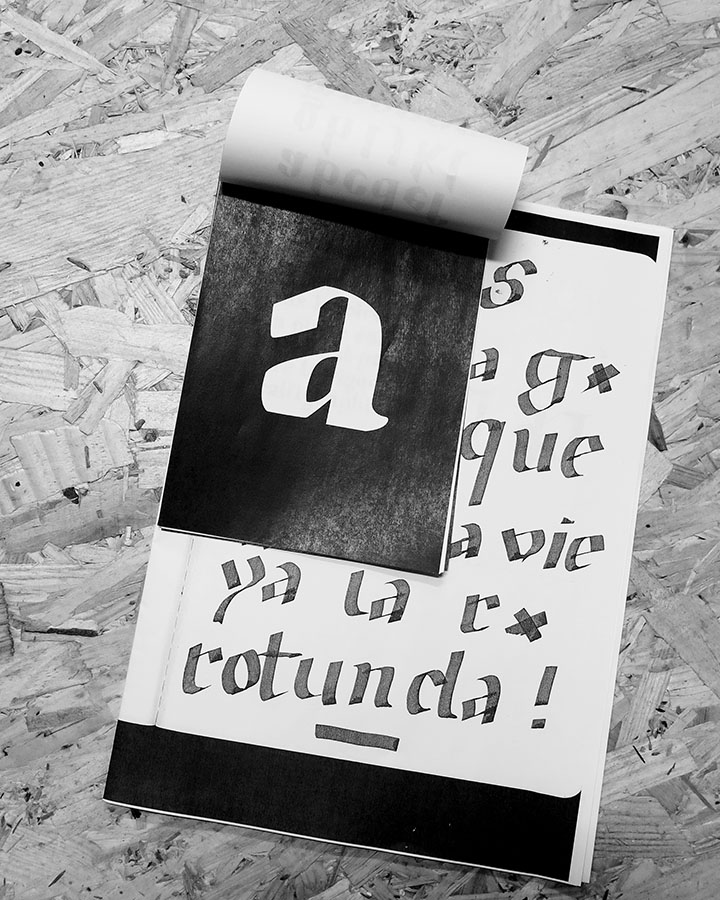 a
s
a g×
que
a vie
ya la r×
rotunda !